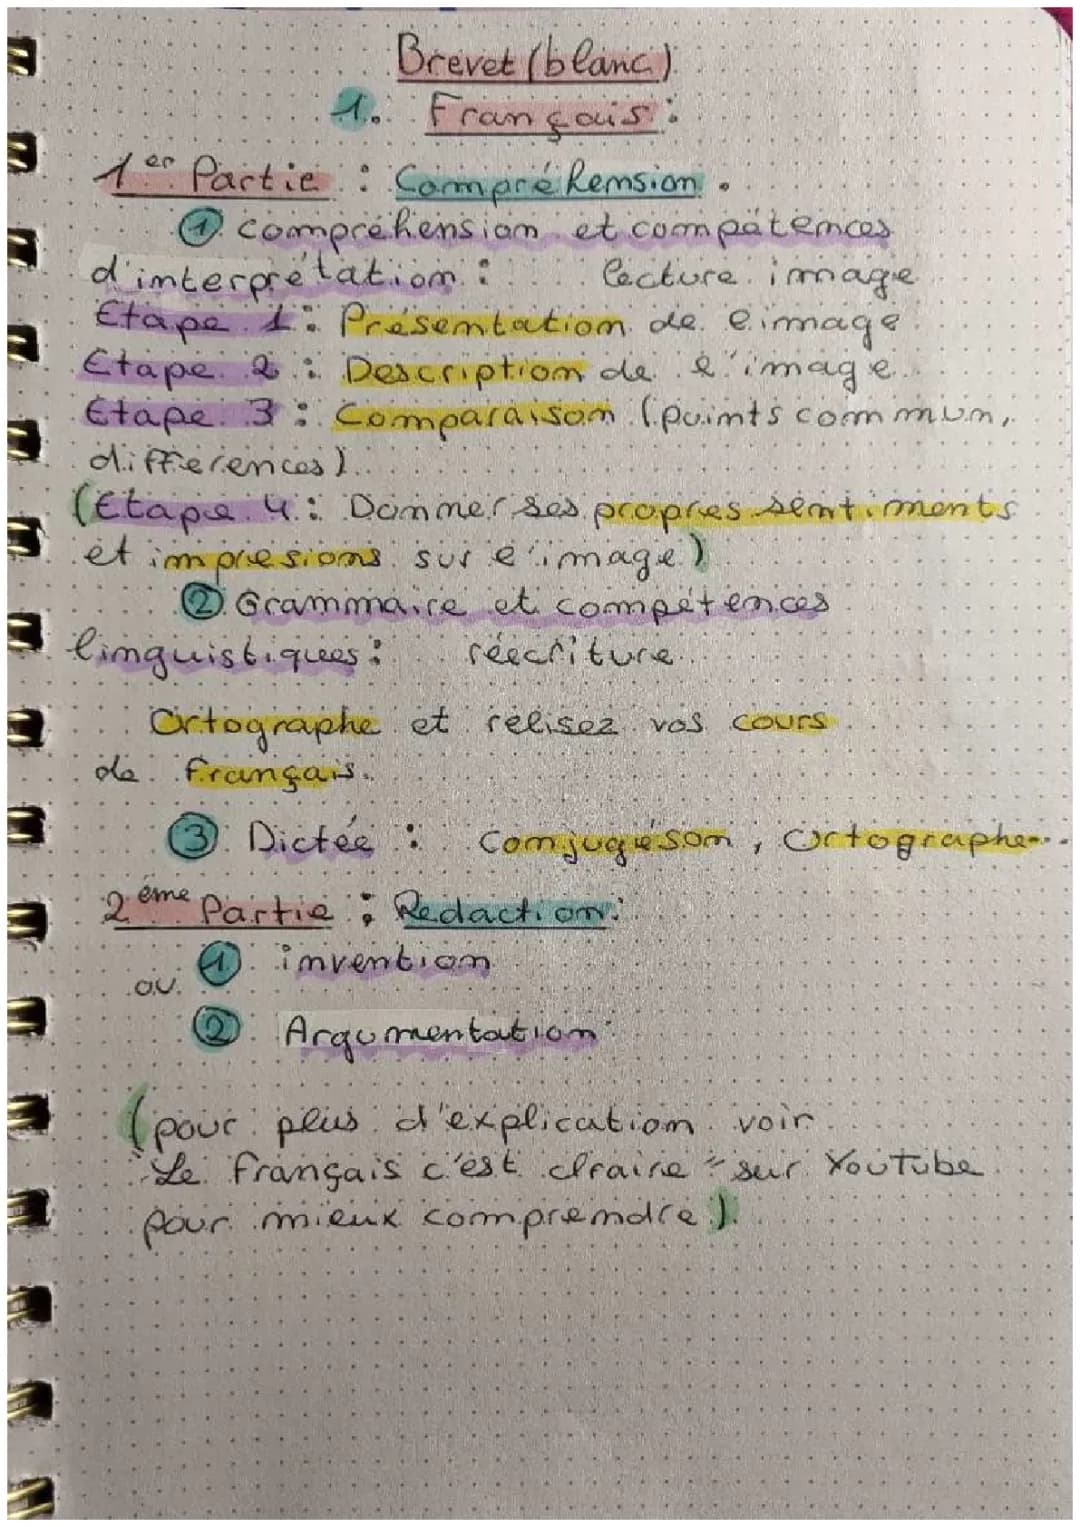 Brevet (blanc)
1. Français :
1er Partie : Compréhension.
① compréhension et compétences
d'interprétation : lecture image
Etape 1 : Présentation de l'image
Etape 2 : Description de l'image.
Etape 3 : Comparaison (points commun,
differences).
(Etape 4 : Donner ses propres sentiments
et impresions sur l'image)
② Grammaire et compétences
linguistiques : réecriture
Ortographe et relisez vos cours
de français.
③ Dictée : Conjugeson, Ortographe...
2ème Partie : Redaction :
① invention
ou
② Argumentation
(pour plus d'explication voir
"Le français c'est claire" sur YouTube
pour mieux comprendre).